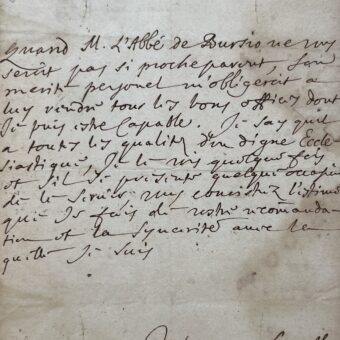 Quand M. L'Abbé de Bursio ne vous
seroit pas si proche parent, son
merite personel m'obligeroit a
luy rendre tous les bons offices dont
Je puis estre Capable. Je say qu'il
a toutes les qualitez d'un digne Eccle-
siastique, Je le vois quelque fois
et s'il se presente quelque occasion
de le servir vous connoistrez l'estime
que Je fais de vostre recomanda-
tion et la syncerité avec la
quelle Je suis